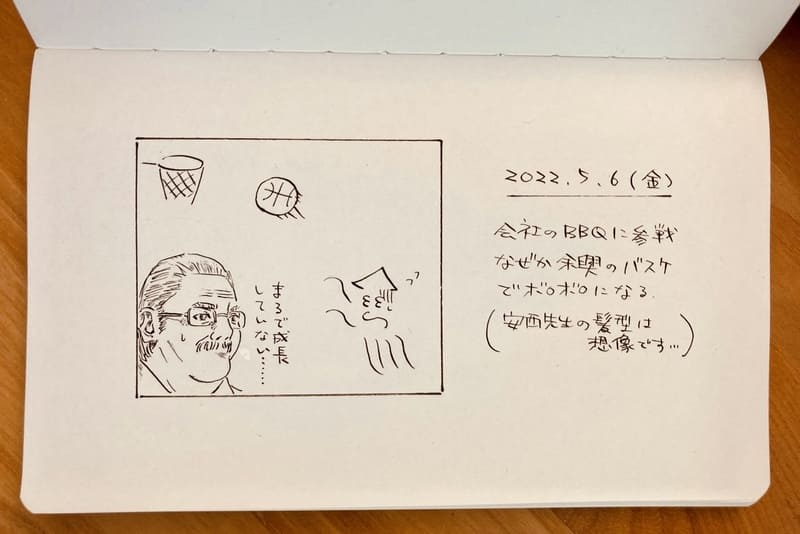 まるで成長
していない……
2022.5.6(金)
会社のBBQに参戦
なぜか余興のバスケ
でボロボロになる.
(安西先生の髪型は
想像です…)